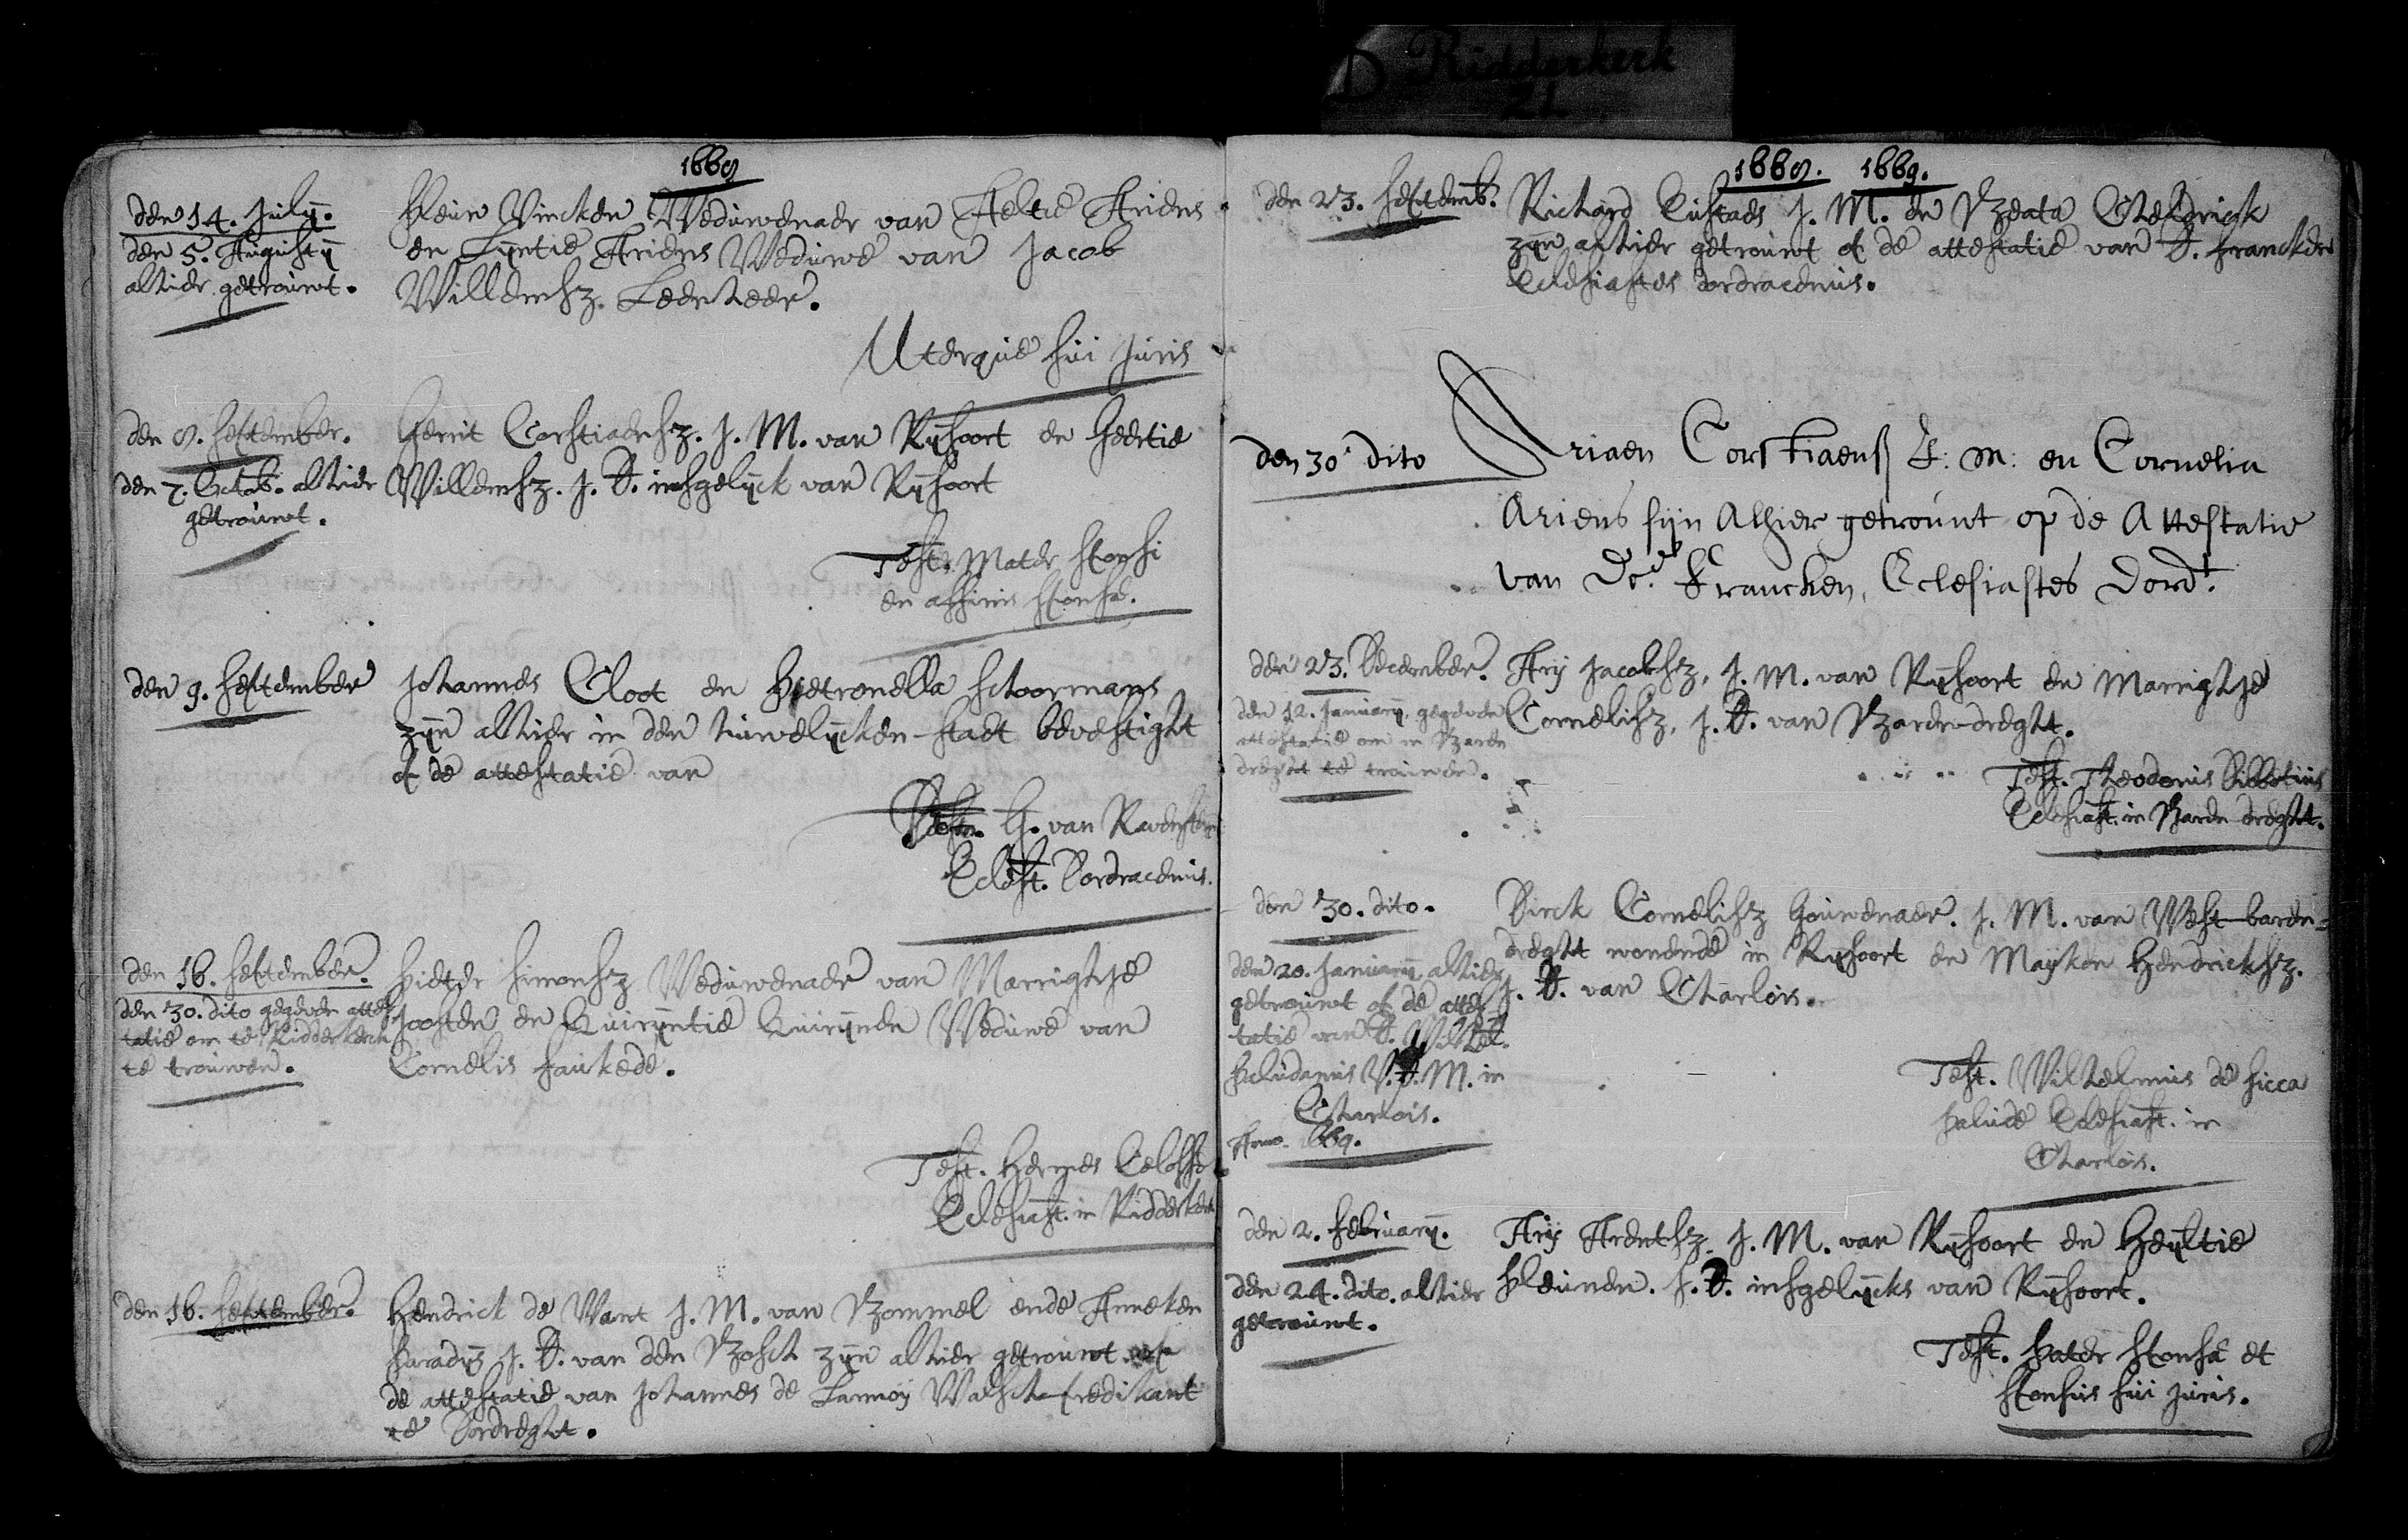 D Ridderkerk
21.
1668
den 14. Julij.
den 5. Augustij
alhier getrouwt.
Pleun Vincken Weduwenaer van Aeltie Ariens
en Lijntie Ariens Weduwe van Jacob
Willemsz. Leenheer.
Uterque sui juris
den 8. September.
den 7. Octob. alhier
getrouwt.
Gerrit Corstiaensz. J. M. van Rijsoort en Geertie
Willemsz. J. D. insgelijck van Rijsoort
Test. Mater sponsi
en affinis sponsae.
den 9. September
Johannes Cloot en Pietronella Schoormans
zijn alhier in den huwelijcken-staet bevestight
op de attestatie van
G. van
Eclest. Dordracenus.
den 16. September.
den 30. dito gegeven attes
tatie om te Ridderkerck
te trouwen.
Pieter Simonsz Weduwenaer van Marrightje
Joosten en Quirijntie Quirijnen Weduwe van
Cornelis
Test. Hermes Celosse
Eclesiast. in Ridderkerk
den 16. September.
Hendrick de Want J. M. van Bommel ende Anneken
Paradijs J. D. van den Bosch zijn alhier getrouwt op
de attestatie van Johannes de Lannoij Walsch-predikant
te Dordreght.
1668. 1669.
den 23. Septemb.
Richard J. M. en Beata
zijn alhier getrouwt op de attestatie van D. Francken
Eclesiastes Dordracenus.
den 30 dito
Ariaen Corstiaensz J: m: en Cornelia
Ariens sijn Alhier getrouwt op de Attestatie
van Francken, Eclesiastes Dordt.
den 23. December.
den 12. Januarij. gegeven
attestatie om in Baren
dreght te trouwen.
Arij Jacobsz, J. M. van Rijsoort en Marrightje
Cornelisz, J. D. van Baren-dreght.
Test. Theodorus
Eclesiast. in Baren dreght.
den 30. dito.
den 20. Januarij alhier
getrouwt op de attes
tatie van D. Wilhel.
V. D. M. in
Charlois.
Anno 1669.
Dirck Cornelisz Gouwenaer. J. M. van West-baren-
dreght wonende in Rijsoort en Maijken Hendricksz.
J. D. van Charlois.
Test. Wilhelmus de Sicca
Palude Eclesiast. in
Charlois.
den 2. Februarij.
den 24. dito. alhier
getrouwt.
Arij Arentsz. J. M. van Rijsoort en Heijltie
Pleunen. J. D. insgelijcks van Rijsoort.
Test. Pater sponsae et
sponsus sui juris.